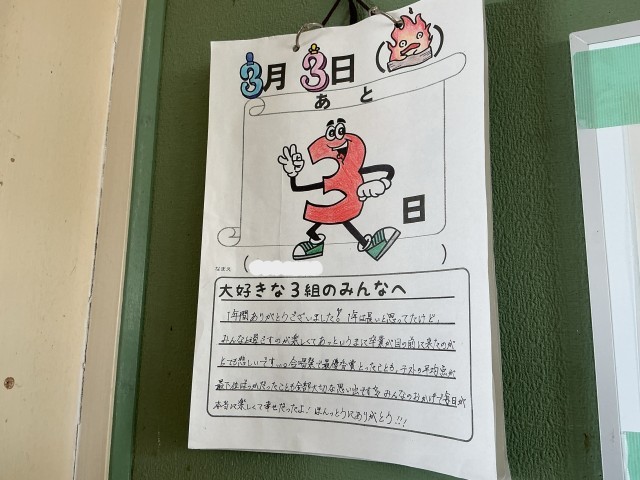 3月3日()
あと
3
日
なまえ ( )
大好きな3組のみんなへ
1年間ありがとうございました!! 1年は長いと思ってたけど、
みんなと過ごすのが楽しくてあっというまに卒業が目の前に来たのが
とても悲しいです。。。合唱祭で最優秀賞とったことも、テストの平均点が
最下位だったことも全部大切な思い出です みんなのおかげで毎日が
本当に楽しくて幸せだったよ! ほんっとうにありがとう!!!